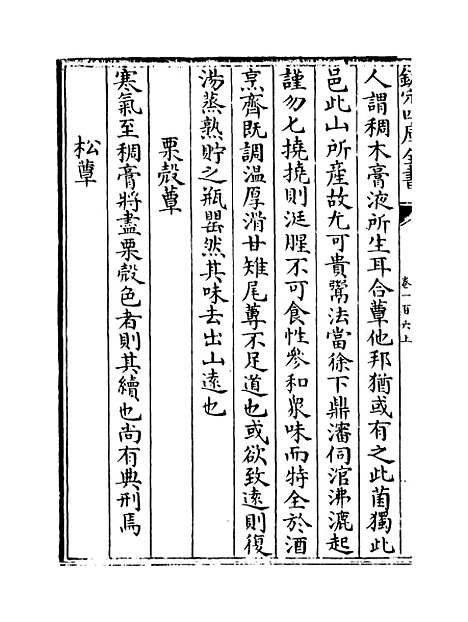 欽定四庫全書
卷一百六上
人謂稠木膏液所生耳合蕈他邦猶或有之此菌獨此
邑此山所産故尤可貴鬻法當徐下鼎瀋伺涫沸漉起
謹勿七撓撓則涎腥不可食性參和衆味而特全於酒
烹齊既調温厚滑甘雉尾蓴不足道也或欲致遠則復
湯蒸熟貯之瓶罌然其味去出山遠也
栗殻蕈
寒氣至稠膏將盡栗殻色者則其續也尚有典刑焉
松蕈